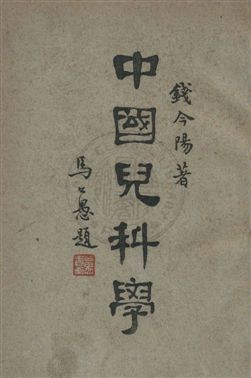 錢今陽著
中國兒科學
馬公愚題